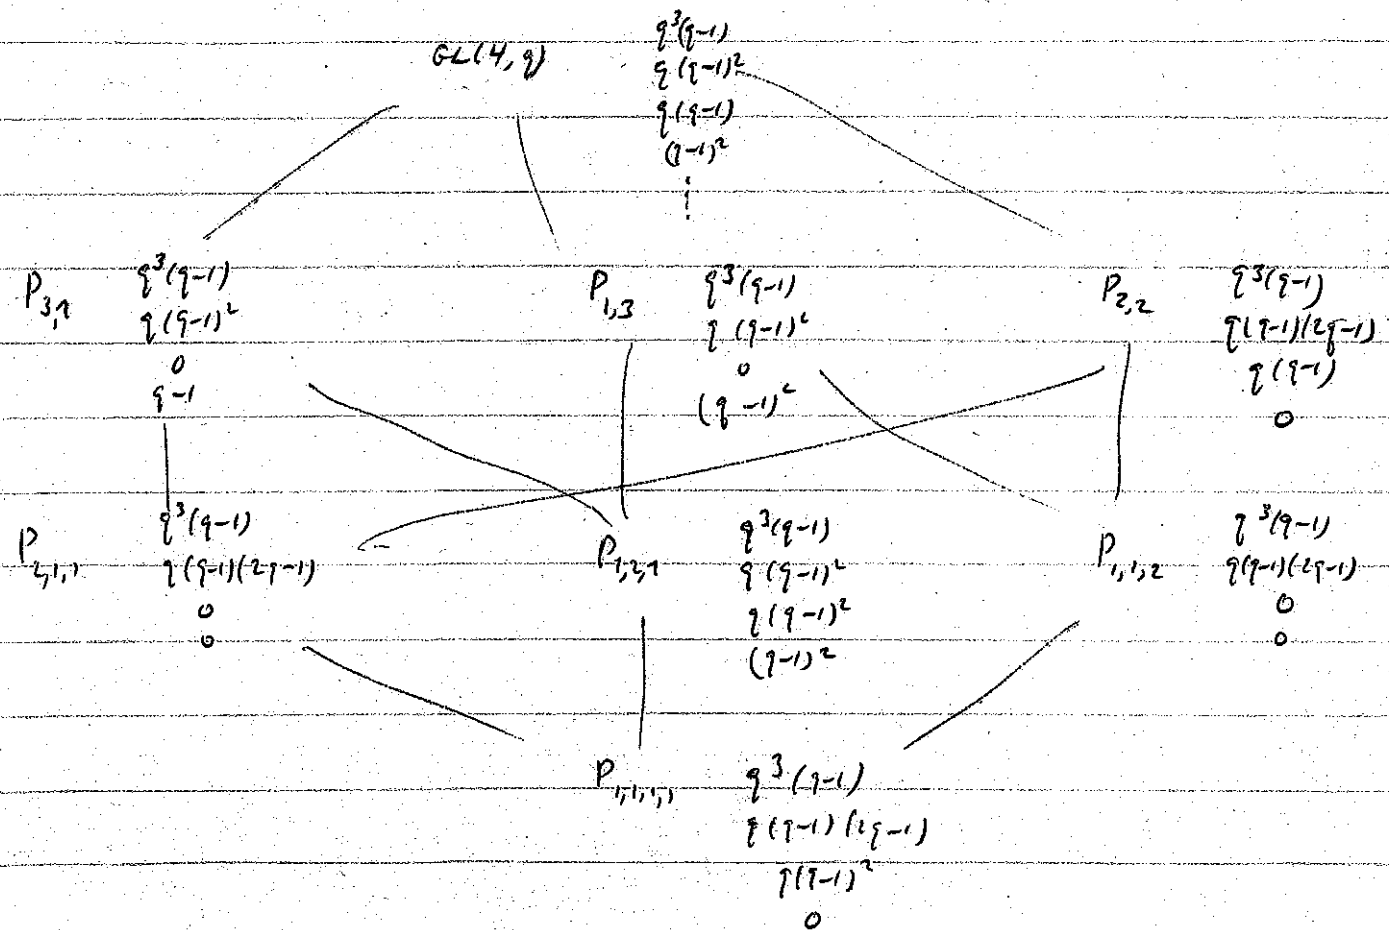 GL(4,q)
q³(q-1)
q(q-1)²
q(q-1)
(q-1)²
⋮
P₃,₁
q³(q-1)
q(q-1)²
0
q-1
P₁,₃
q³(q-1)
q(q-1)²
0
(q-1)²
P₂,₂
q³(q-1)
q(q-1)(2q-1)
q(q-1)
0
P₂,₁,₁
q³(q-1)
q(q-1)(2q-1)
0
0
P₁,₂,₁
q³(q-1)
q(q-1)²
q(q-1)²
(q-1)²
P₁,₁,₂
q³(q-1)
q(q-1)(2q-1)
0
0
P₁,₁,₁,₁
q³(q-1)
q(q-1)(2q-1)
q(q-1)²
0